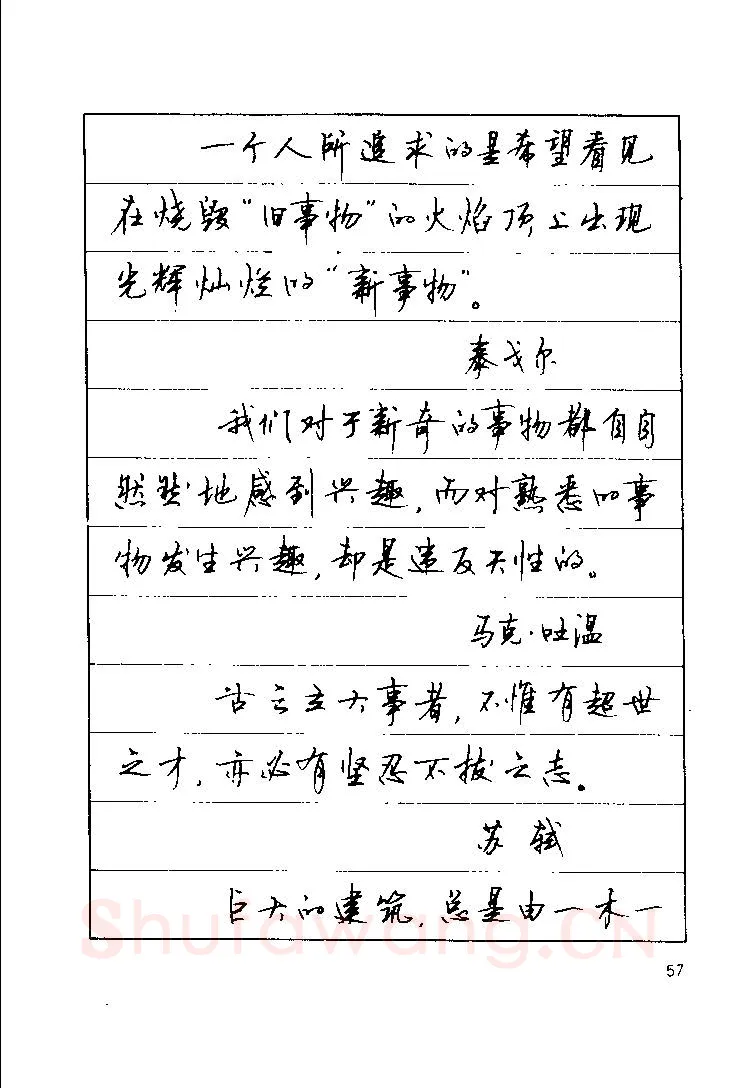 一个人所追求的是希望看见
在烧毁“旧事物”的火焰顶上出现
光辉灿烂的“新事物”。
泰戈尔
我们对于新奇的事物都自自
然然地感到兴趣，而对熟悉的事
物发生兴趣，却是违反天性的。
马克·吐温
古之立大事者，不惟有超世
之才，亦必有坚忍不拔之志。
苏轼
巨大的建筑，总是由一木一
Shufawang.CN
57